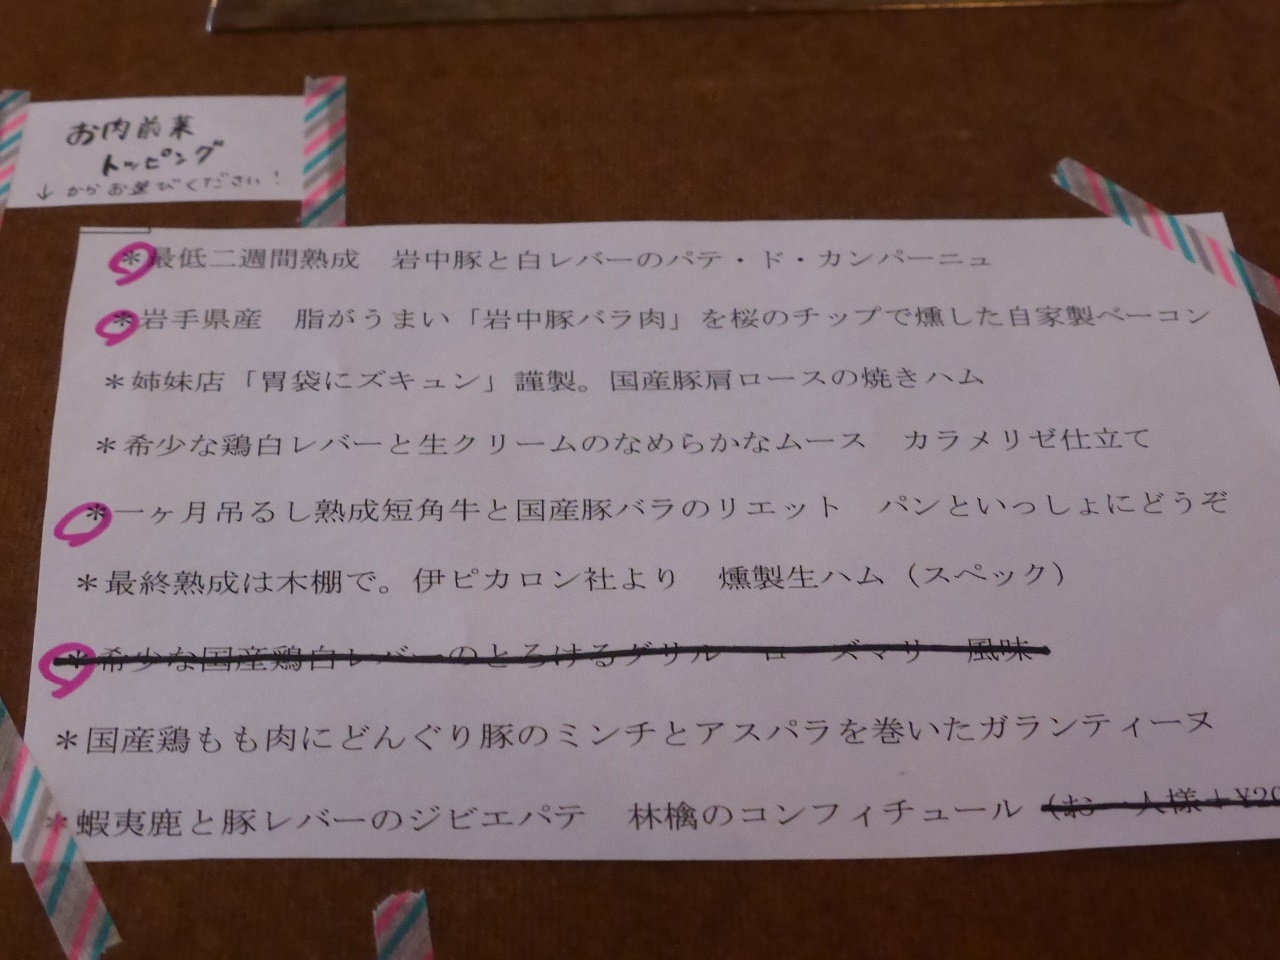 お肉前菜
トッピング
↓からお選びください!
＊最低二週間熟成　岩中豚と白レバーのパテ・ド・カンパーニュ
＊岩手県産　脂がうまい「岩中豚バラ肉」を桜のチップで燻した自家製ベーコン
＊姉妹店「胃袋にズキュン」謹製。国産豚肩ロースの焼きハム
＊希少な鶏白レバーと生クリームのなめらかなムース　カラメリゼ仕立て
＊一ヶ月吊るし熟成短角牛と国産豚バラのリエット　パンといっしょにどうぞ
＊最終熟成は木棚で。伊ピカロン社より　燻製生ハム（スペック）
＊希少な国産鶏白レバーのとろけるグリル　ローズマリー風味
＊国産鶏もも肉にどんぐり豚のミンチとアスパラを巻いたガランティーヌ
＊蝦夷鹿と豚レバーのジビエパテ　林檎のコンフィチュール（お一人様＋¥20